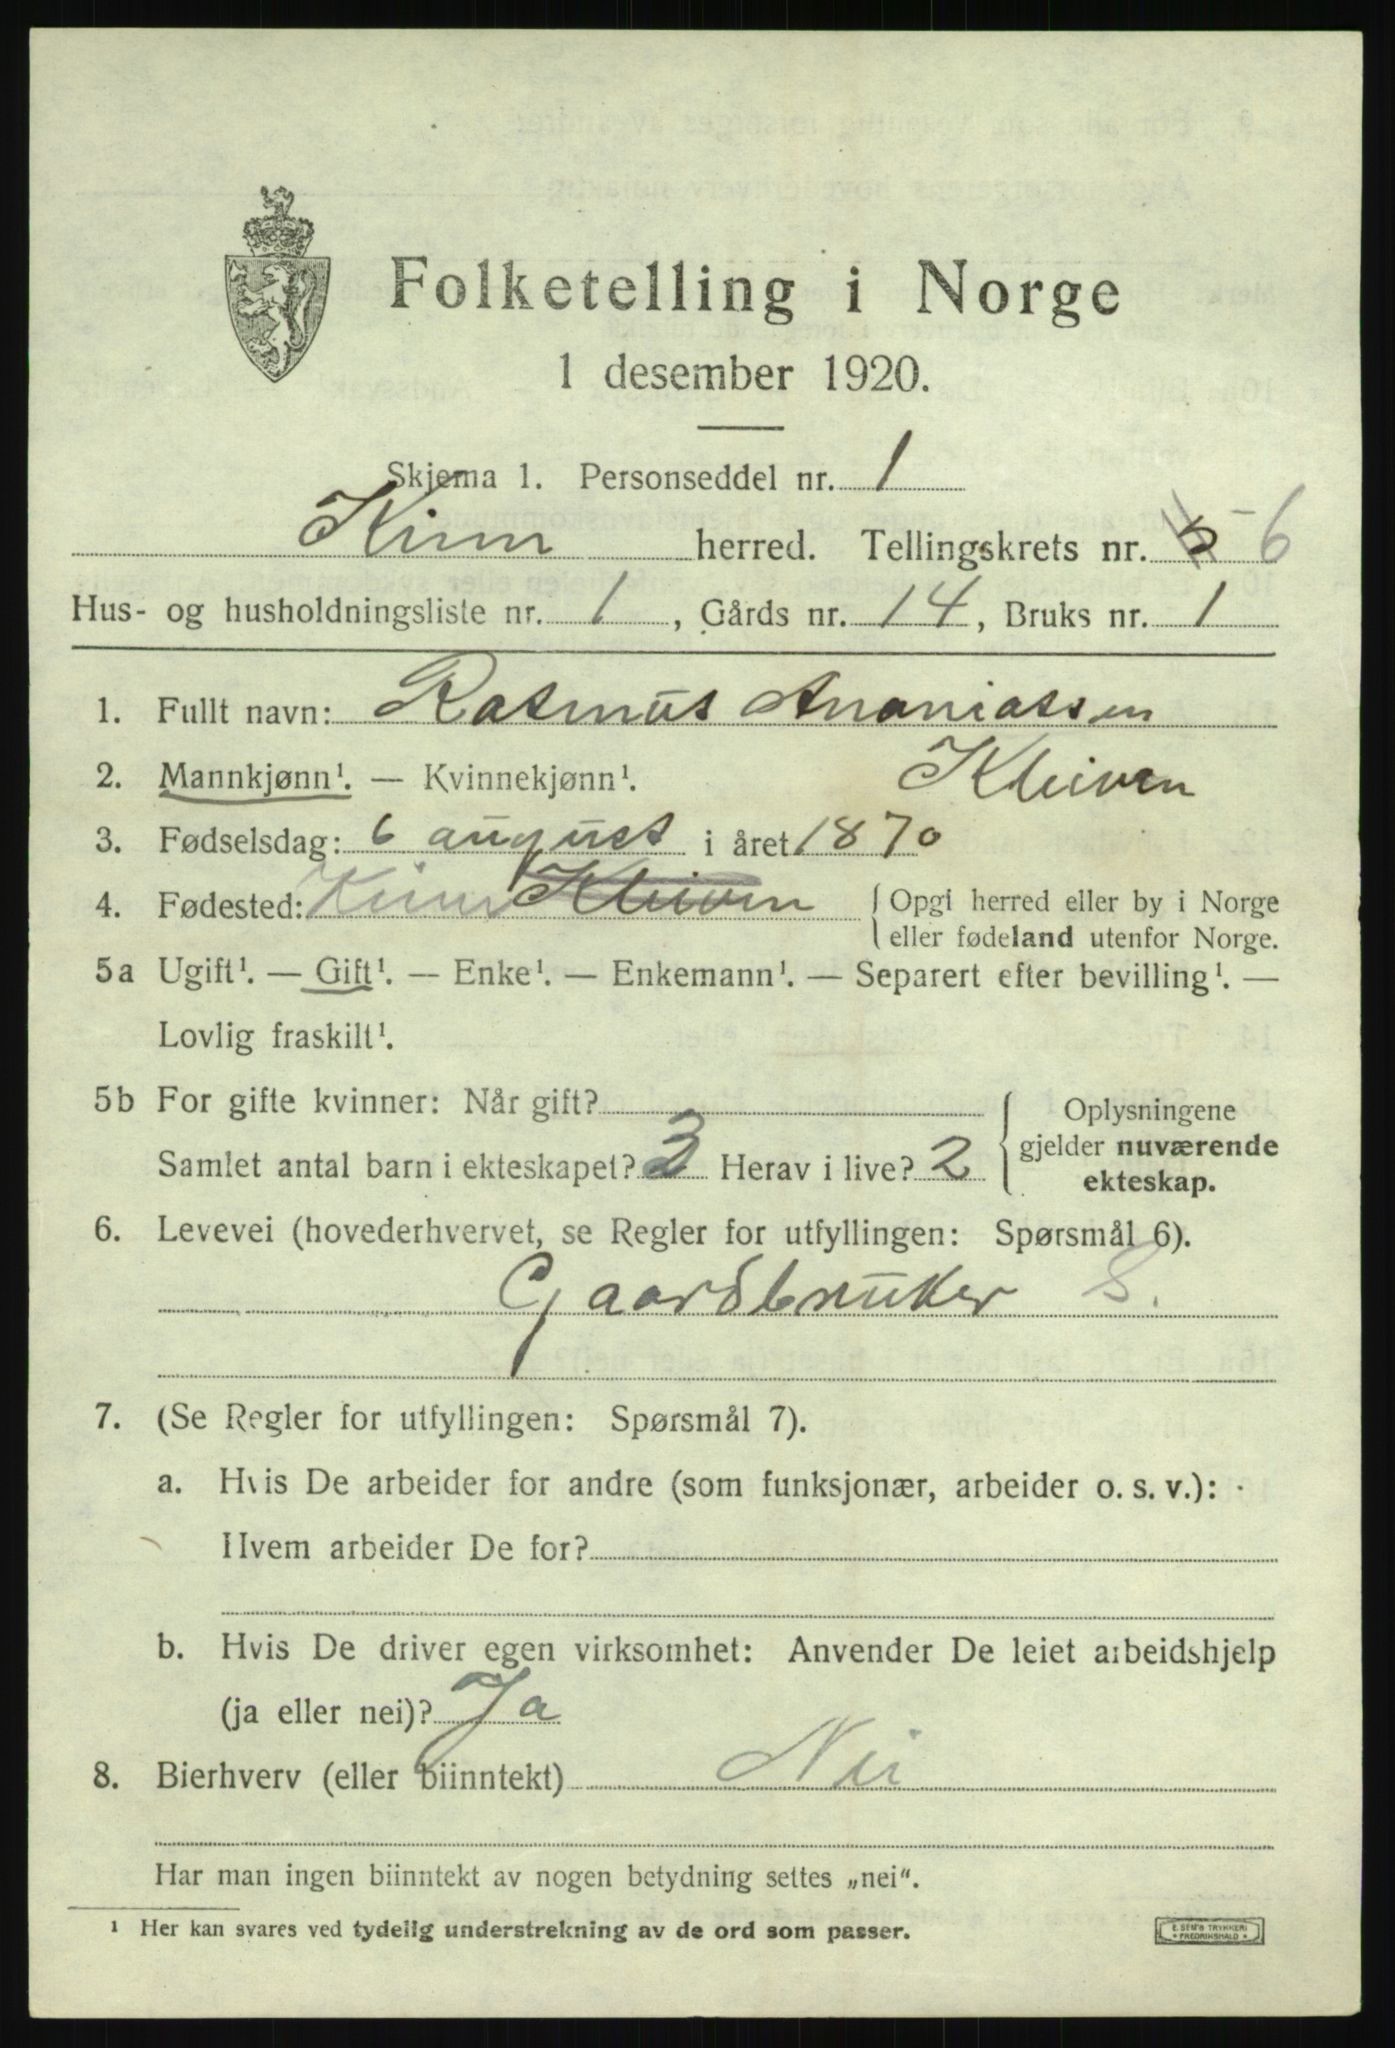 Folketelling i Norge
1 desember 1920.
Skjema 1. Personseddel nr. 1
Kinn herred. Tellingskrets nr. 5 6
Hus- og husholdningsliste nr. 1, Gårds nr. 14, Bruks nr. 1
1. Fullt navn: Rasmus Ananiassen
2. Mannkjønn¹. — Kvinnekjønn¹. Kleiven
3. Fødselsdag: 6 august i året 1870
4. Fødested: Kinn Kleiven { Opgi herred eller by i Norge
eller fødeland utenfor Norge.
5a Ugift¹. — Gift¹. — Enke¹. — Enkemann¹. — Separert efter bevilling¹. —
Lovlig fraskilt¹.
5b For gifte kvinner: Når gift? { Oplysningene
Samlet antal barn i ekteskapet? 3 Herav i live? 2 gjelder nuværende
ekteskap.
6. Levevei (hovederhvervet, se Regler for utfyllingen: Spørsmål 6).
Gaardbruker S.
7. (Se Regler for utfyllingen: Spørsmål 7).
a. Hvis De arbeider for andre (som funksjonær, arbeider o. s. v.):
Hvem arbeider De for?
b. Hvis De driver egen virksomhet: Anvender De leiet arbeidshjelp
(ja eller nei)? Ja
8. Bierhverv (eller biinntekt) Nei
Har man ingen biinntekt av nogen betydning settes „nei“.
¹ Her kan svares ved tydelig understrekning av de ord som passer.
E. SEM'S TRYKKERI
* FREDRIKSHALD *